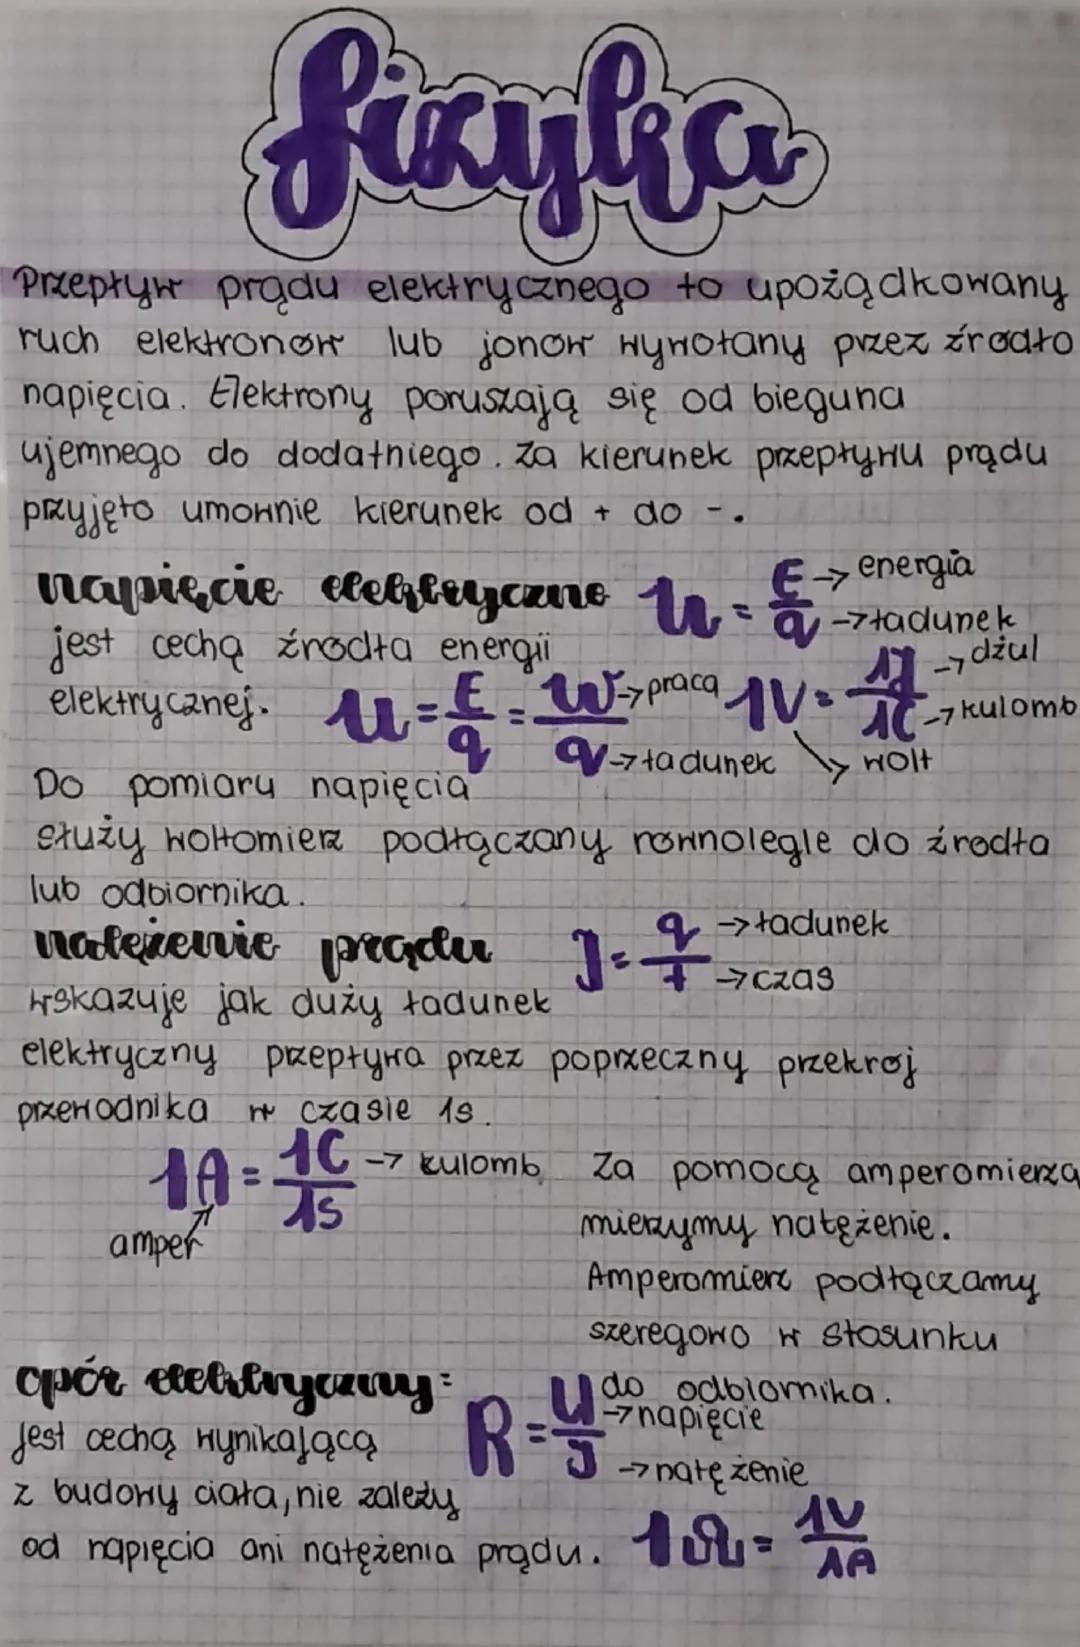 fizyka
Przepływ prądu elektrycznego to upożądkowany
ruch elektronów lub jonów wywołany przez źródło
napięcia. Elektrony poruszają się od bieguna
ujemnego do dodatniego. Za kierunek przepływu prądu
przyjęto umownie kierunek od + do -.
napięcie elektryczne U = E/q → energia → ładunek
jest cechą źródła energii
elektrycznej. U = E/q = W/q → praca → ładunek 1V = 1J/1C → dżul → kulomb → wolt
Do pomiaru napięcia
służy woltomierz podłączany równolegle do źródła
lub odbiornika.
natężenie prądu I = q/t → ładunek → czas
wskazuje jak duży ładunek
elektryczny przepływa przez poprzeczny przekrój
przewodnika w czasie 1s.
1A = 1C/1s → kulomb
amper
Za pomocą amperomierza
mierzymy natężenie.
Amperomierz podłączamy
szeregowo w stosunku
do odbiornika.
opór elektryczny: R = U/I → napięcie → natężenie
jest cechą wynikającą
z budowy ciała, nie zależy
od napięcia ani natężenia prądu. 1Ω = 1V/1A